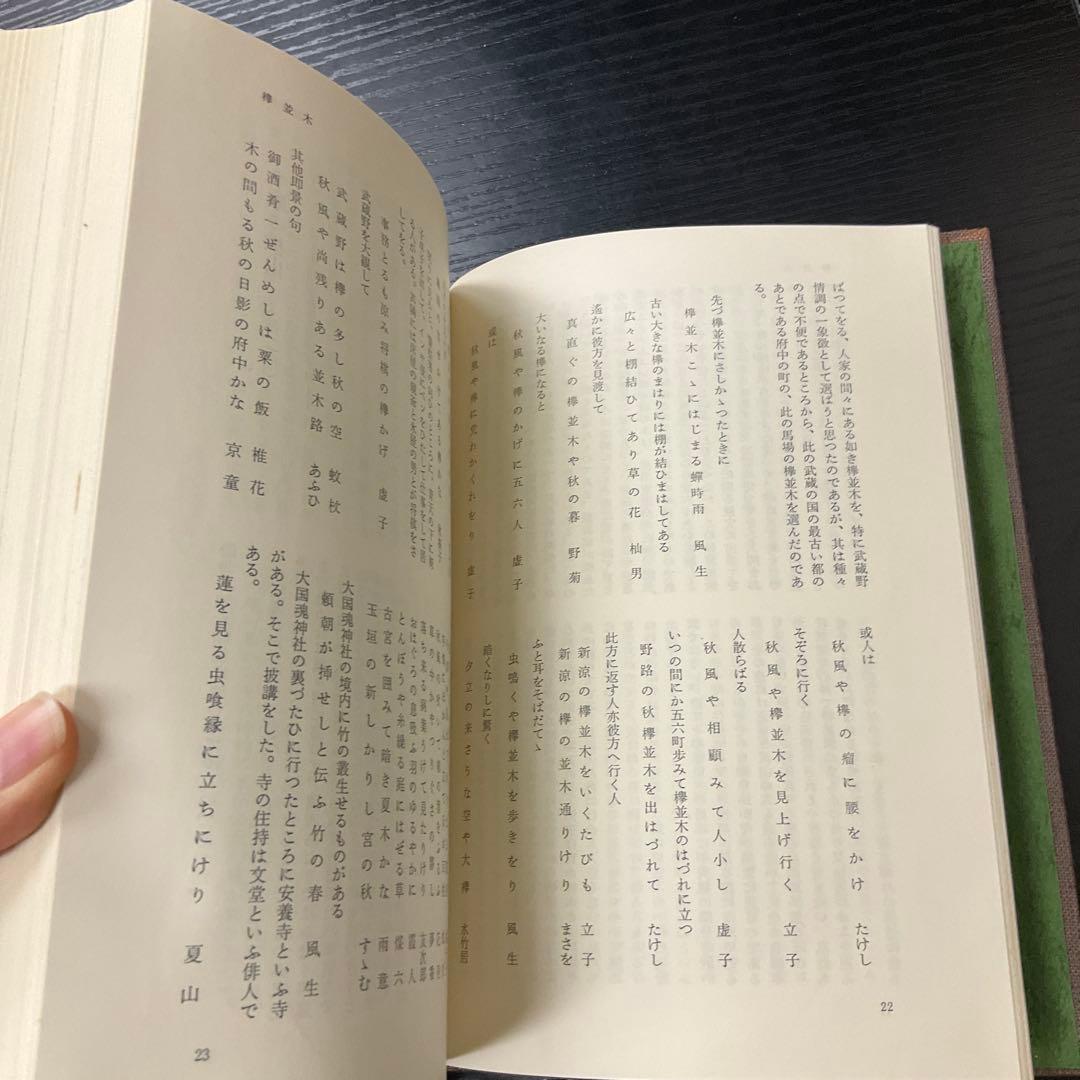 ばつてをる、人家の間々にある如き欅並木を、特に武蔵野
情調の一象徴として選ばうと思つたのであるが、其は種々
の点で不便であるところから、此の武蔵の国の最古い都の
あとである府中の町の、此の馬場の欅並木を選んだのであ
る。
先づ欅並木にさしかゝつたときに
欅並木こゝにはじまる蟬時雨 風生
古い大きな欅のまはりには棚が結ひまはしてある
広々と棚結ひてあり草の花 柚男
遙かに彼方を見渡して
真直ぐの欅並木や秋の暮 野菊
大いなる欅になると
秋風や欅のかげに五六人 虚子
或は
秋風や欅に荒れかくれをり 虚子
或人は
秋風や欅の瘤に腰をかけ たけし
そぞろに行く
秋風や欅並木を見上げ行く 立子
人散らばる
秋風や相顧みて人小し 虚子
いつの間にか五六町歩みて欅並木のはづれに立つ
野路の秋欅並木を出はづれて たけし
此方に返す人亦彼方へ行く人
新涼の欅並木をいくたびも 立子
新涼の欅並木の通りけり まさを
ふと耳をそばだてゝ
虫鳴くや欅並木を歩きをり 風生
暗くなりしに驚く
夕立の来さうな空や大欅 水竹居
22
欅並木
る人がある。
してをる。
事務とるも涼み将棋の欅かげ 虚子
武蔵野を大観して
武蔵野は欅の多し秋の空 蚊杖
秋風や尚残りある並木路 あふひ
其他即景の句
御酒肴一ぜんめしは粟の飯 椎花
木の間もる秋の日影の府中かな 京童
落ち来る 見たりけり 友次郎
おはぐろの息吸ふ羽のゆるやかに
とんぼうや糸繰る庭にはぜる草
古宮を囲みて暗き夏木かな 雨意
玉垣の新しかりし宮の秋 すゝむ
大国魂神社の境内に竹の叢生せるものがある
頼朝が挿せしと伝ふ竹の春 風生
大国魂神社の裏づたひに行つたところに安養寺といふ寺
がある。そこで披講をした。寺の住持は文堂といふ俳人で
ある。
蓮を見る虫喰縁に立ちにけり 夏山
23